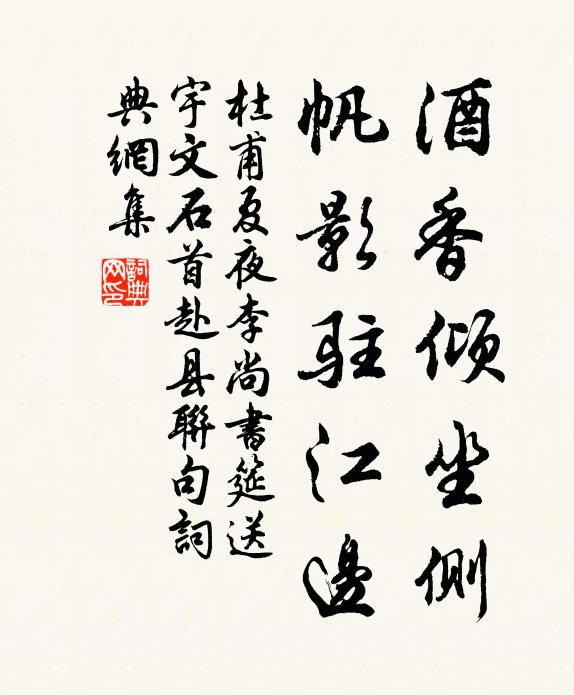 酒香倾坐侧
帆影驻江邊
杜甫夏夜李尚書筵送
宇文石首赴县聯句詞
典網集
詞典
网印